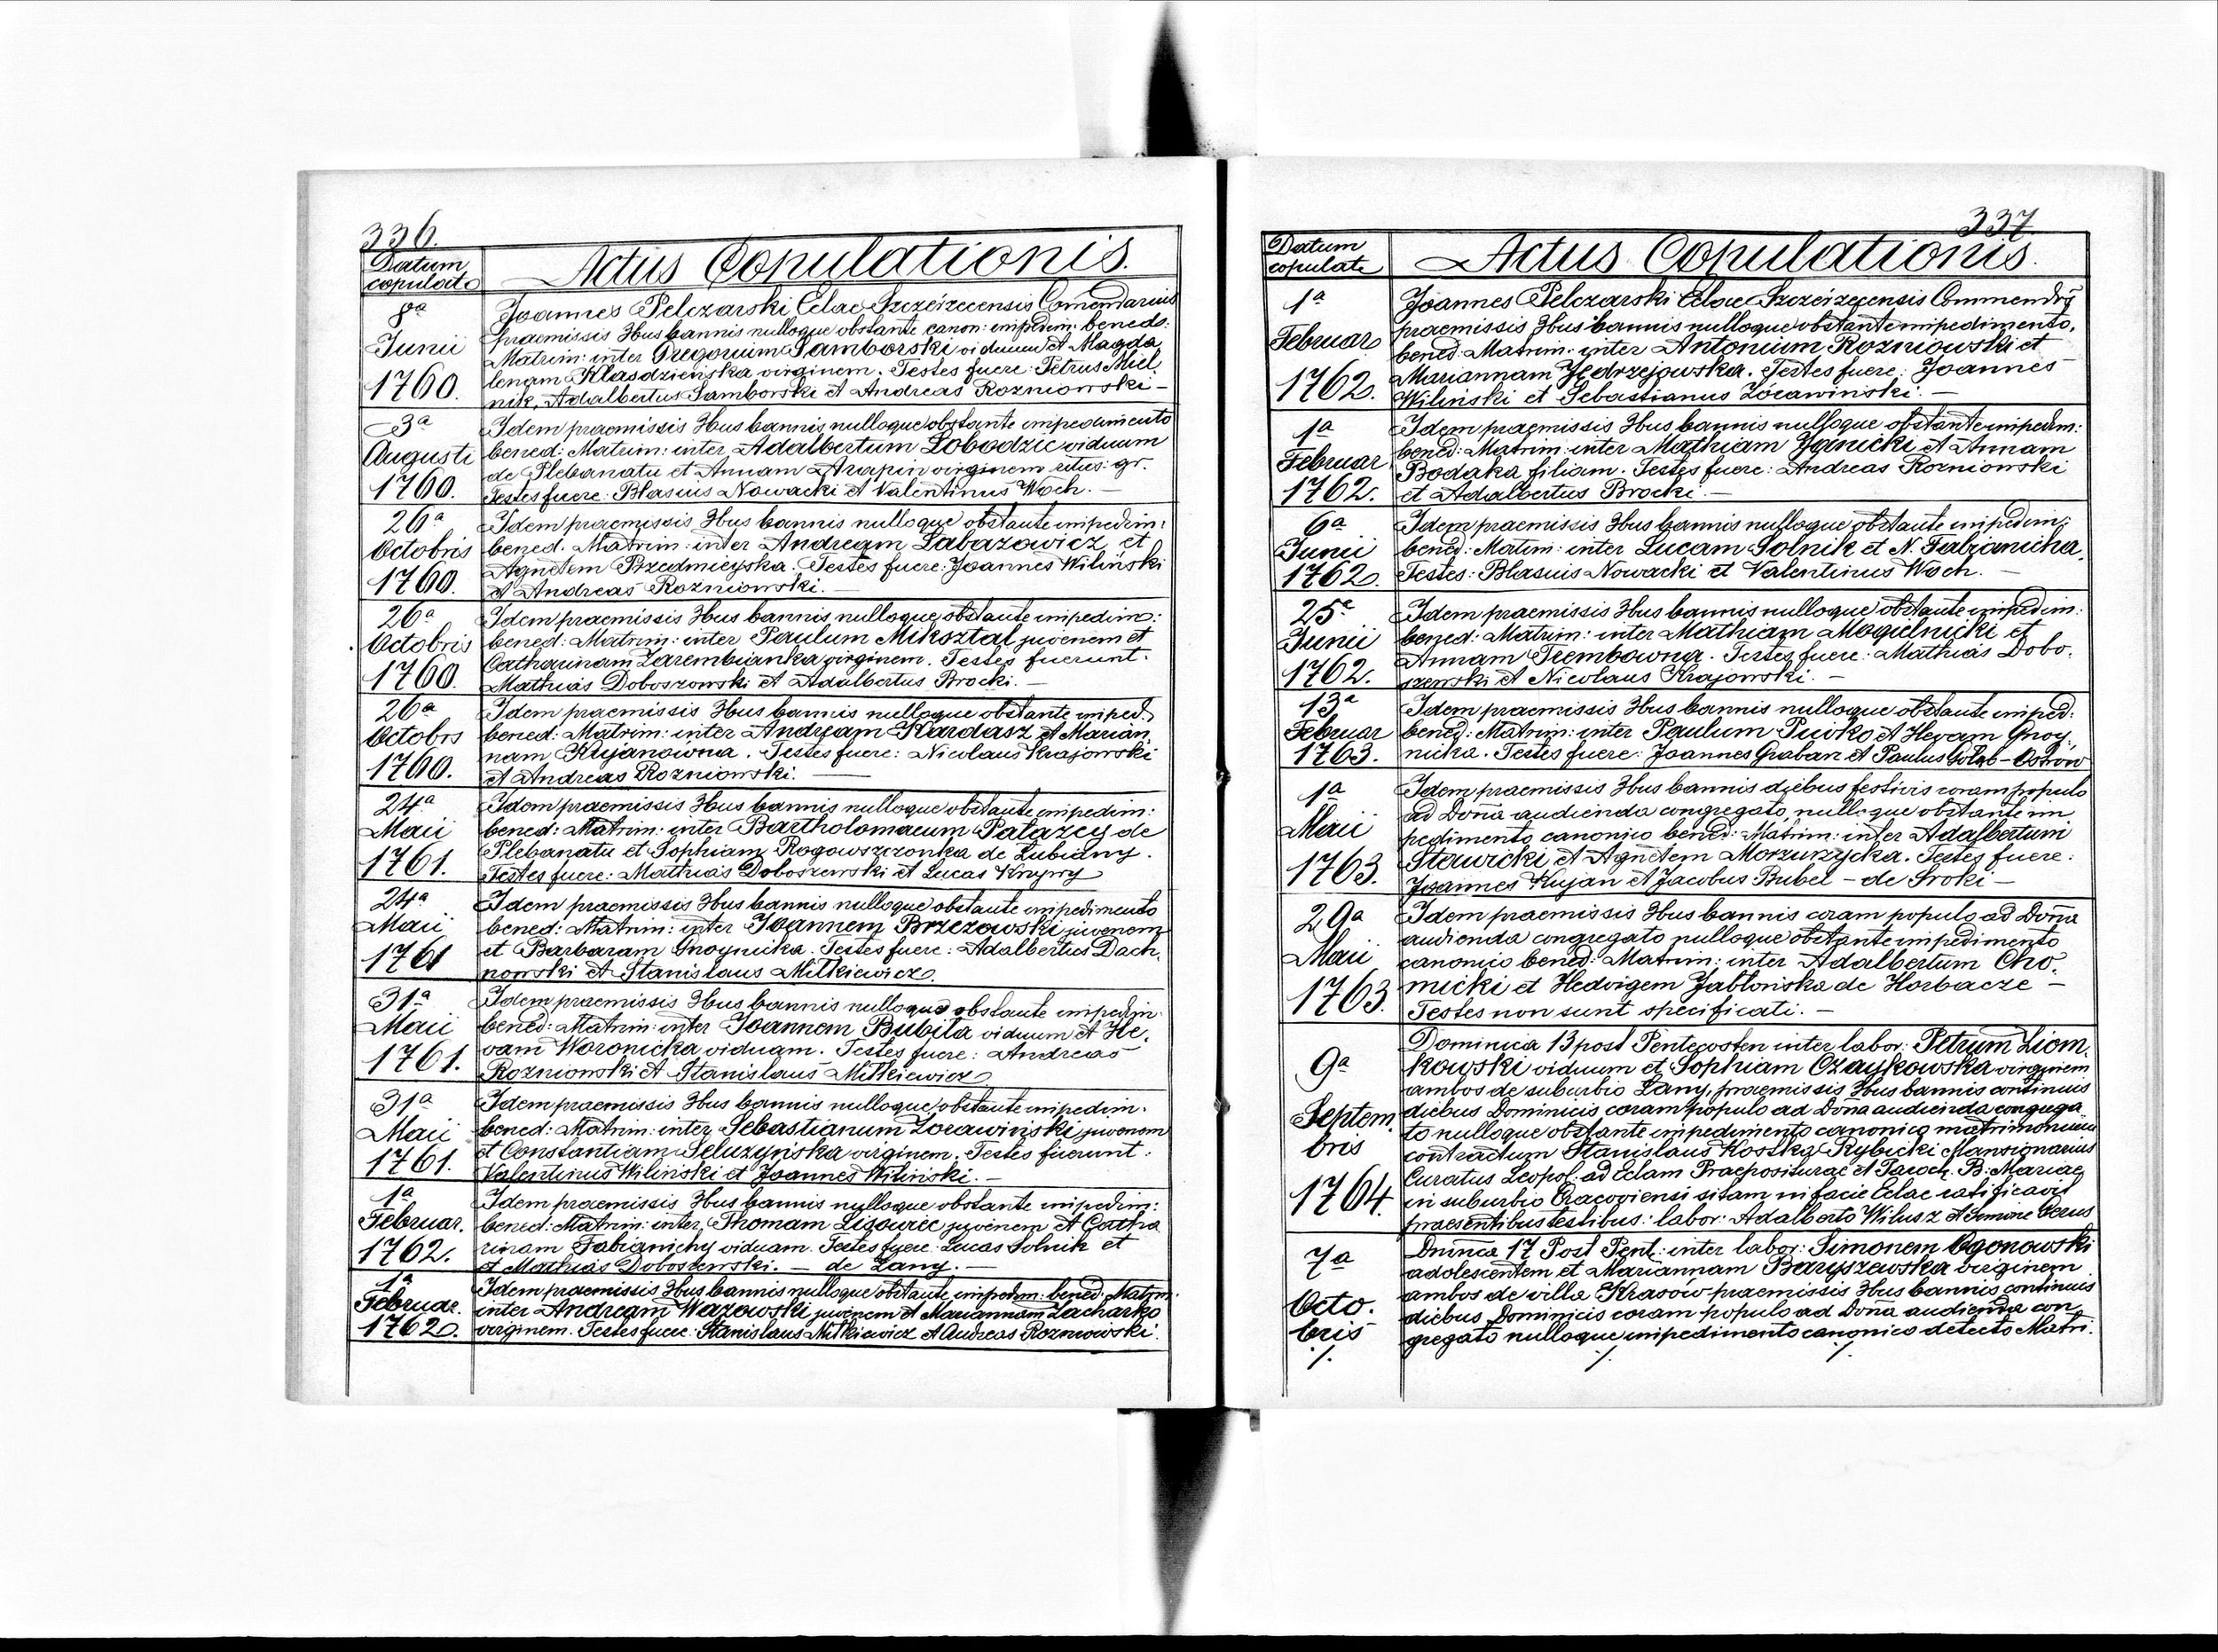 336.
Datum
copulat.
Actus Copulationis.
8ª
Junii
1760.
Joannes Pelczarski Eclae Szczerzecensis Comendarius
praemissis 3bus bannis nulloque obstante canon: impedim: bened:
Matrim: inter Gregorium Samborski viduum et Magda
lenam Klasdzienska virginem. Testes fuere: Petrus Miel,
nik, Adalbertus Samborski et Andreas Rozniowski –
3ª
Augusti
1760.
Idem praemissis 3bus bannis nulloque obstante impedimento
bened: Matrim: inter Adalbertum Lobodzic viduum
de Plebanatu et Annam Arapin virginem ritus: gr.
Testes fuere: Blasius Nowacki et Valentinus Woch. –
26ª
Octobris
1760.
Idem praemissis 3bus bannis nulloque obstante impedim:
bened. Matrim: inter Andream Labazowicz et
Agnetem Przedmieyska. Testes fuere: Joannes Wiliński
et Andreas Rozniowski. –
26ª
Octobris
1760.
Idem praemissis 3bus bannis nulloque obstante impedim:
bened: Matrim: inter Paulum Miksztal juvenem et
Catharinam Zarembianka virginem. Testes fuerunt.
Mathias Doboszowski et Adalbertus Brocki. –
26ª
Octobrs
1760.
Idem praemissis 3bus bannis nulloque obstante imped.
bened: Matrim: inter Andream Kardasz et Marian,
nam Kujanowna. Testes fuere: Nicolaus Krajowski
et Andreas Rozniowski. –
24ª
Maii
1761.
Idem praemissis 3bus bannis nulloque obstante impedim:
bened: Matrim: inter Bartholomaeum Patazey de
Plebanatu et Sophiam Rogowszczonka de Lubiany.
Testes fuere: Mathias Doboszewski et Lucas Krzywy
24ª
Maii
1761
Idem praemissis 3bus bannis nulloque obstante impedimento
bened: Matrim: inter Joannem Brzezowski juvenem
et Barbaram Gnoynicka. Testes fuere: Adalbertus Dach,
nowski et Stanislaus Mitkiewicz.
31ª
Maii
1761.
Idem praemissis 3bus bannis nulloque obstante impedim
bened: Matrim: inter Joannem Bubila viduum et He,
vam Woronicka viduam. Testes fuere: Andreas
Rozniowski et Stanislaus Mitkiewicz
31ª
Maii
1761.
Idem praemissis 3bus bannis nulloque obstante impedim.
bened: Matrim: inter Sebastianum Zorawinski juvenem
et Constantiam Seluzyńska virginem. Testes fuerunt:
Valentinus Wiliński et Joannes Wiliński. –
1ª
Februar.
1762.
Idem praemissis 3bus bannis nulloque obstante impedim:
bened: Matrim: inter Thomam Ligowiec juvenem et Catha
rinam Fabianichy viduam. Testes fuere: Lucas Solnik et
et Mathias Doboszewski. – de Lany. –
1ª
Februar.
1762.
Idem praemissis 3bus bannis nulloque obstante impedim: bened: Matrim:
inter Andream Wazowski juvenem et Mariannam Zacharko
virginem. Testes fuere: Stanislaus Mitkiewicz et Andreas Rozniowski.
337
Datum
copulate
Actus Copulationis.
1ª
Februar
1762.
Joannes Pelczarski Eclae Szczerzecensis Commendrg
praemissis 3bus bannis nulloque obstante impedimento,
bened: Matrim: inter Antonium Rozniowski et
Mariannam Jędrzejowska. Testes fuere: Joannes
Wiliński et Sebastianus Zórawinski. –
1ª
Februar
1762.
Idem praemissis 3bus bannis nulloque obstante impedim:
bened: Matrim: inter Mathiam Ygnicki et Annam
Bodaka filiam. Testes fuere: Andreas Rozniowski
et Adalbertus Brocki. –
6ª
Junii
1762.
Idem praemissis 3bus bannis nulloque obstante impedim:
bened: Matrim: inter Lucam Solnik et N. Fabianicha.
Testes: Blasius Nowacki et Valentinus Woch. –
25ª
Junii
1762.
Idem praemissis 3bus bannis nulloque obstante impedim:
bened: Matrim: inter Mathiam Mogielnicki et
Annam Trembowna. Testes fuere: Mathias Dobo.
szewski et Nicolaus Krajowski. –
13ª
Februar
1763.
Idem praemissis 3bus bannis nulloque obstante imped:
bened: Matrim: inter Paulum Puoko et Hevam Gnoy,
nicka. Testes fuere: Joannes Graban et Paulus Gołąb – Ostrów
1ª
Maii
1763.
Idem praemissis 3bus bannis diebus festivis coram populo
ad Dona audienda congregato, nulloque obstante im
pedimento canonico bened: Matrim: inter Adalbertum
Stawicki et Agnetem Morzurzycka. Testes fuere:
Joannes Kujan et Jacobus Bubel – de Sroki –
29ª
Maii
1763.
Idem praemissis 3bus bannis coram populo ad Dona
audienda congregato nulloque obstante impedimento
canonico bened: Matrim: inter Adalbertum Cho,
micki et Hedvigem Jabłońska de Horbacze –
Testes non sunt specificati. –
9ª
Septem,
bris
1764.
Dominica 13 post Pentecosten inter labor: Petrum Ziom,
kowski viduum et Sophiam Czaykowska virginem
ambos de suburbio Lany, praemissis 3bus bannis continuis
diebus Dominicis coram populo ad Dona audienda congrega
to nulloque obstante impedimento canonico matrimonium
contractum Stanislaus Kostka Rybicki Mansionarius
Curatus Leopol. ad Eclam Praepositurae et Paroch. B. Mariae
in suburbio Cracoviensi sitam in facie Eclae ratificavit
praesentibus testibus: labor: Adalberto Wilusz et Simone Gerus
7ª
Octo.
bris
./.
Dninca 17 Post Pent: inter labor: Simonem Ogonowski
adolescentem et Mariannam Baryszewska virginem
ambos de villa Krasów praemissis 3bus bannis continuis
diebus Dominicis coram populo ad Dona audienda con,
gregato nulloque impedimento canonico detecto Matri.
./. ./.